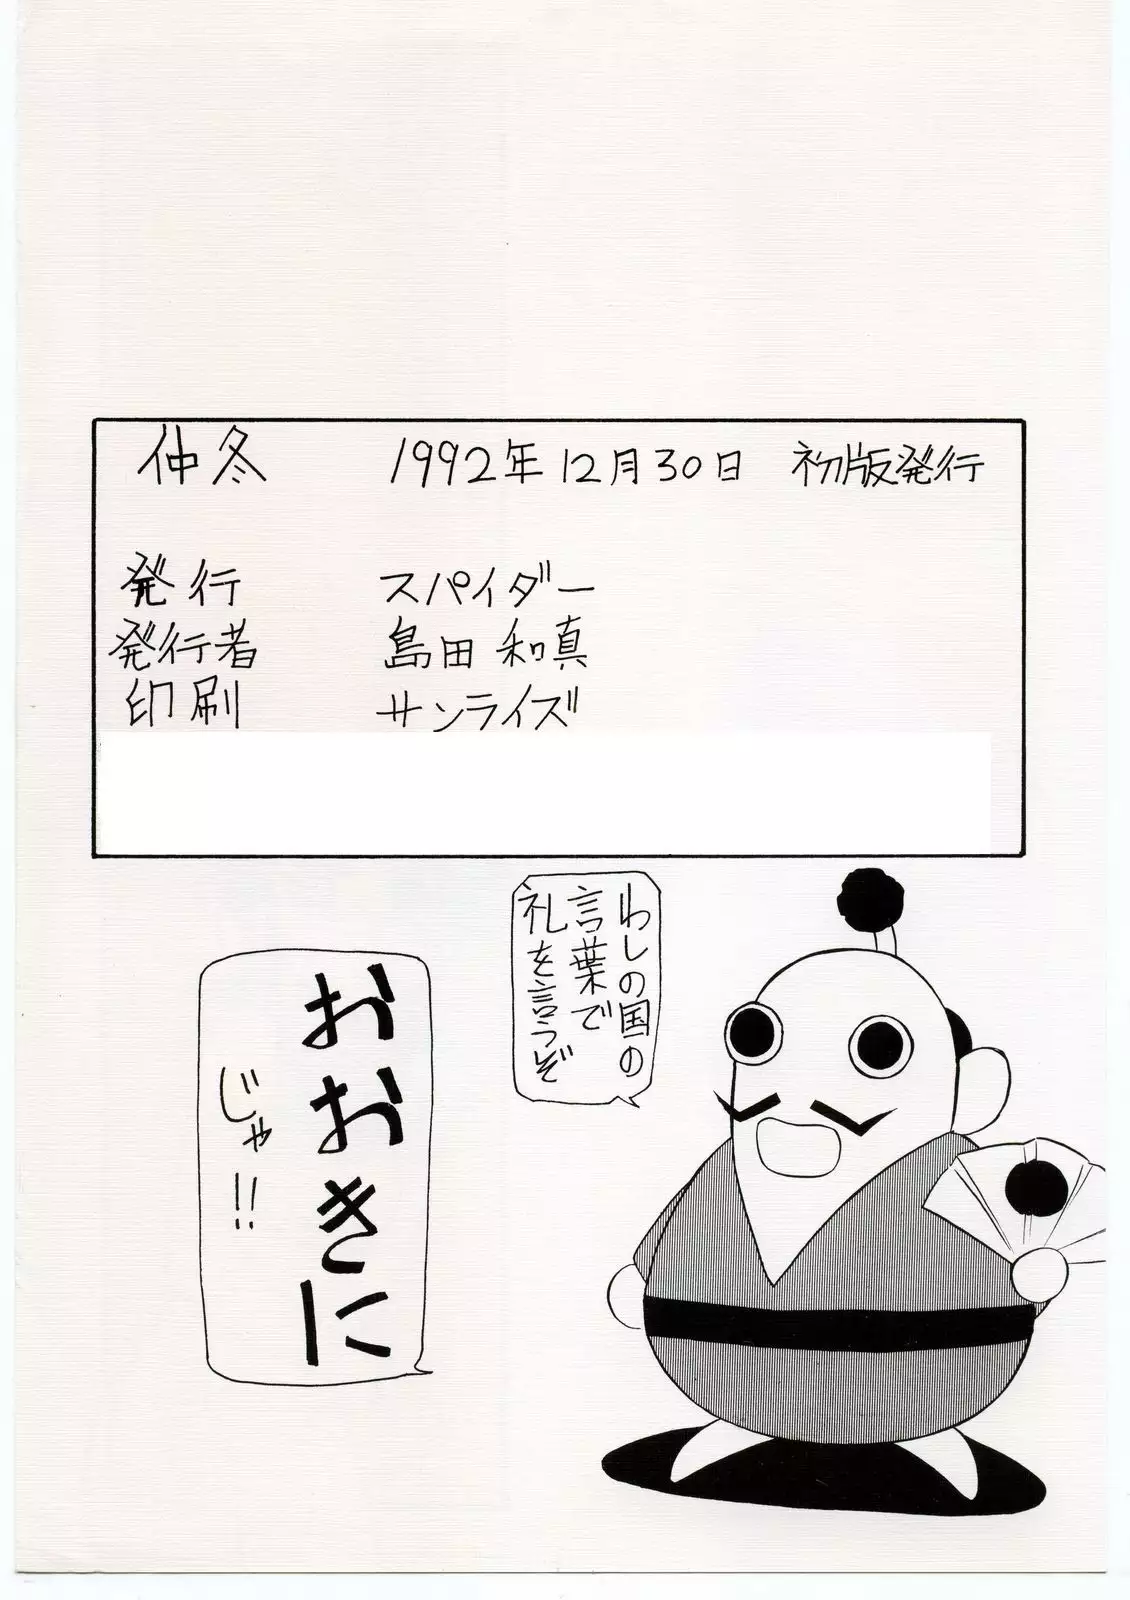 仲冬 1992年12月30日 初版発行
発行 スパイダー
発行者 島田和真
印刷 サンライズ
わしの国の
言葉で
礼を言うぞ
おおきに
じゃ!!